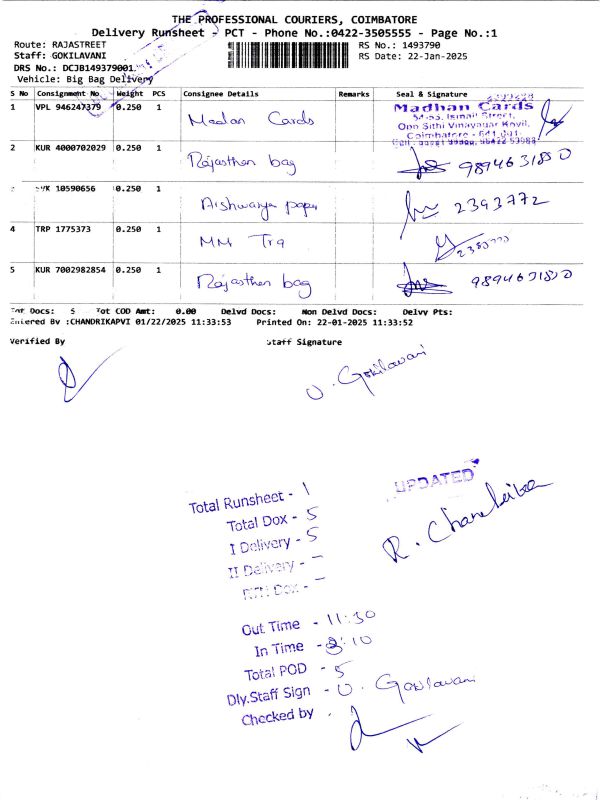 THE PROFESSIONAL COURIERS, COIMBATORE
Delivery Runsheet - PCT - Phone No.:0422-3505555 - Page No.:1
Route: RAJASTREET RS No.: 1493790
Staff: GOKILAVANI RS Date: 22-Jan-2025
DRS No.: DCJB149379001
Vehicle: Big Bag Delivery
S No Consignment No Weight PCS Consignee Details Remarks Seal & Signature
1 VPL 946247379 0.250 1 Madan Cards Madhan Cards
Opp Sithi Vinayagar Kovil,
Coimbatore - 641 001.
2 KUR 4000702029 0.250 1 Rajasthan bag 9894631850
10590656 0.250 1 Aishwarya paper 2393772
4 TRP 1775373 0.250 1 MM Trq
5 KUR 7002982854 0.250 1 Rajasthan bag 9894631850
Tot Docs: 5 Tot COD Amt: 0.00 Delvd Docs: Non Delvd Docs: Delvy Pts:
Entered By :CHANDRIKAPVI 01/22/2025 11:33:53 Printed On: 22-01-2025 11:33:52
Verified By Staff Signature
U. Gokilavani
UPDATED
R. Chandrika
Total Runsheet - 1
Total Dox - 5
I Delivery - 5
II Delivery -
RTN Dox -
Out Time - 11:30
In Time - 3:10
Total POD - 5
Dly.Staff Sign - U. Gokilavani
Checked by